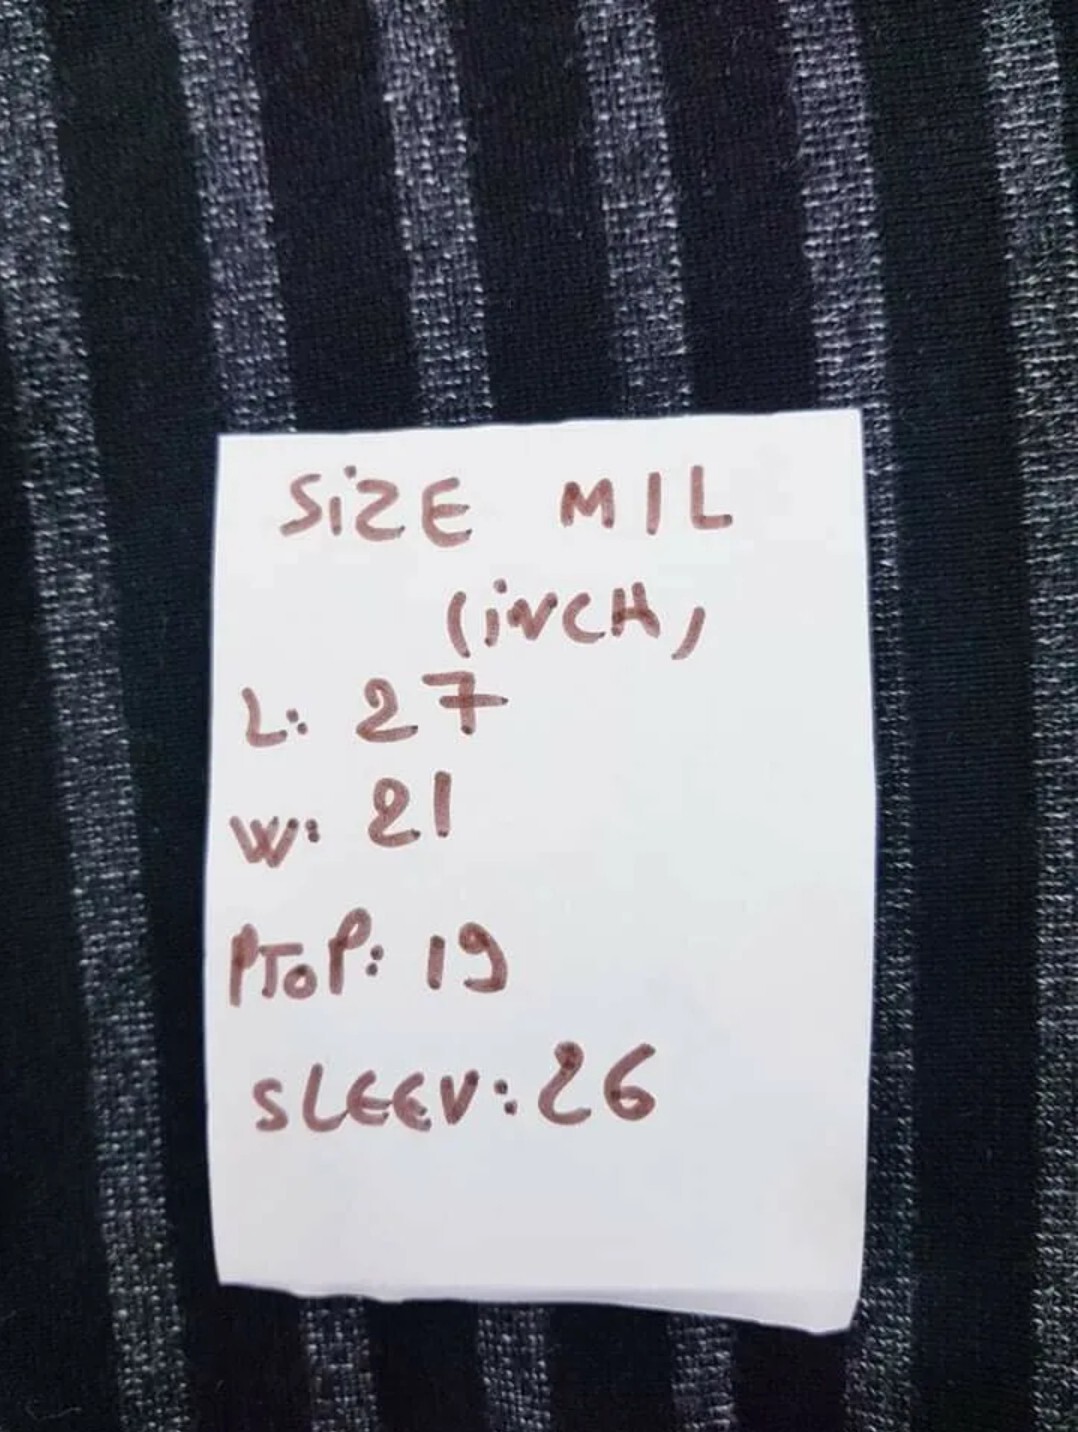 SiZE M/L
(iNCH)
L: 27
W: 21
PToP: 19
SLEEV: 26